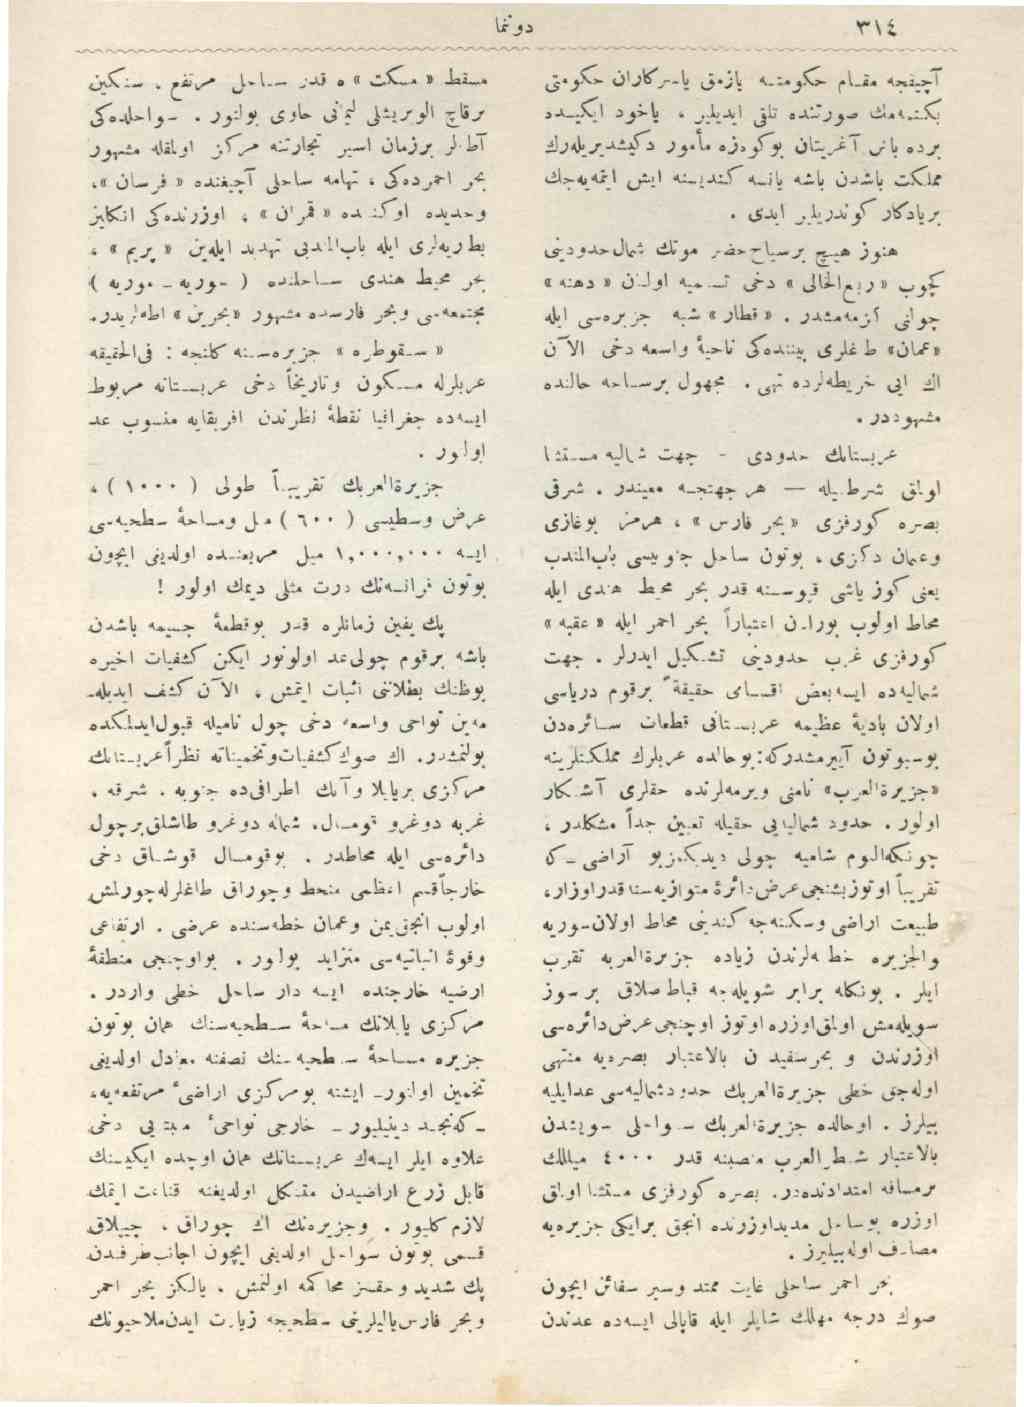 ٣١٤
دوننما
آچيقجه مقام حكومته يازمق ياسركاران حكومتی
صورتنده تلقی ايديلير ، ياخود ايكيده
برده بانی آغريتان بوكوردزه مأمور دكيشديريله‌رك
مملكت باشدن باشه ياسه كندينه ايش ايتمه‌يه‌جك
بريادكار كوندريلير ايدی .
هنوز هيچ برسياح حضرموتك شمال حدودينی
كچوب « ربع‌الخالی » دخی تسميه اولنان « دهنه »
چولنی كزمه‌مشدر . « قطار » شبه جزيره‌سی ايله
«عمان» طاغلری بيننده‌كی ناحيهٔ واسعه دخی الآن
اك ايی خريطه‌لرده تهی . مجهول برساحه حالنده
مشهوددر .
عربستانك حدودی - جهت شماليه مستثنا
اولمق شرطيله — هر جهتجه معيندر . شرقی
بصره كورفزی « بحر فارس » ، هرمز بوغازی
وعمان دكزی ، بوتون ساحل جنوبيسی باب‌المندب
يعنی كوز ياشی قپوسنه قدر بحر محيط هندی ايله
محاط اولوب بورادن اعتباراً بحر احمر ايله « عقبه »
كورفزی غرب حدودينی تشكيل ايدرلر . جهت
شماليه‌ده ايسه بعض اقسامی حقيقةً برقوم درياسی
اولان باديهٔ عظيمه عربستانی قطعات سائره‌دن
بوسبوتون آييرمشدركه : بوحالده عربلرك مملكتلرينه
«جزيرة‌العرب» نامنی ويرمه‌لرنده حقلری آشكار
اولور . حدود شمالی‌يی حقيله تعيين جداً مشكلدر ،
چونكه اليوم شاميه چولی ديديكمز بو آراضی‌كه
تقريباً اوتوز بشنجی عرض دائرهٔ متوازيه‌سنه قدر اوزار ،
طبيعت اراضی وسكنه‌جه كندينی محاط اولان سوريه
والجزيره خطه‌لرندن زياده جزيرة‌العربه تقرب
ايلر . بونكله برابر شويله‌جه قباطاصلاق بر سوز
سويله‌مش اولمق اوزره اوتوز اوچنجی عرض دائره‌سی
اوزرندن و بحرسفيددن بالاعتبار بصره‌يه منتهی
اوله‌جق خطی جزيرة‌العربك حدود شماليه‌سی عدايليه
بيلرز . اوحالده جزيرة‌العربك سواحلی سويشدن
بالاعتبار شط‌العرب منصبنه قدر ٤٠٠٠ ميللك
برمسافه امتدادنده‌در . بصره كورفزی مستثنا اولمق
اوزره بوساحل مديد اوزرنده انجق برايكی جزيره‌يه
مصادف اوله‌بيليرز .
بحر احمر ساحلی غايت ممتد وسير سفائن ايچون
صوك درجه مهلك شاپلر ايله قاپالی ايسه‌ده عدندن
مسقط « مسكت » ه قدر ساحل مرتفع ، سنكين
برقاچ الويريشلی ليمانی حاوی بولنور . سواحلده‌كی
آطه‌لر برزمان اسير تجارتنه مركز اولمقله مشهور
بحر احمرده‌كی ، تهامه ساحلی آچيغنده « فرسان »،
وحديده اوكنده « قمران » ، اوزرنده‌كی انكليز
بطريه‌لری ايله باب‌المندبی تهديد ايله‌ين « پريم » ،
بحر محيط هندی ساحلنده ( سوريه - موريه )
مجتمعه‌سی وبحر فارسده مشهور « بحرين » اطه‌لريدر.
« سقوطره » جزيره‌سنه كلنجه : فی‌الحقيقه
عربلرله مسكون وتاريخاً دخی عربستانه مربوط
ايسه‌ده جغرافيا نقطهٔ نظرندن افريقايه منسوب عد
اولنور .
جزيرة‌العربك تقريباً طولی ( ١٠٠٠ ) ،
عرض وسطيسی ( ٦٠٠ ) ميل ومساحهٔ سطحيه‌سی
ايسه ١,٠٠٠,٠٠٠ ميل مربعنده اولديغی ايچون
بوتون فرانسه‌نك درت مثلی ديمك اولور !
پك يقين زمانلره قدر بوقطعهٔ جسيمه باشدن
باشه برقوم چولی عد اولونور ايكن كشفيات اخيره
بوظنك بطلاننی اثبات ايتمش ، الآن كشف ايديله‌-
مه‌ين نواحی واسعه دخی چول ناميله قبول ايدلمكده
بولنمشدر. اك صوك كشفيات وتخميناته نظراً عربستانك
مركزی بريايلا وآنك اطرافی ده جنوبه . شرقه .
غربه دوغرو قومسال. شماله دوغرو طاشلق برچول
دائره‌سی ايله محاطدر . بوقومسال قوشاق دخی
خارجاً قسم اعظمی منحط وچوراق طاغلرله چورلمش
اولوب انجق يمن وعمان خطه‌سنده عرضی . ارتفاعی
وقوهٔ انباتيه‌سی متزايد بولنور . بواوچنجی منطقهٔ
ارضيه خارجنده ايسه دار ساحل خطی واردر .
مركزی يايلانك مساحهٔ سطحيه‌سنك همان بوتون
جزيره مساحهٔ سطحيه‌سنك نصفنه معادل اولديغی
تخمين اولنور. ايشته بومركزی اراضیٔ مرتفعه‌يه،
-كه نجد دينيليور- خارجی نواحیٔ منبته‌يی دخی
علاوه ايلر ايسه‌ك عربستانك همان اوچده ايكيسنك
قابل زرع اراضيدن متشكل اولديغنه قناعت ايتمك
لازم كليور . وجزيره‌نك اك چوراق ، چيپلاق
قسمی بوتون سواحل اولديغی ايچون اجانب طرفندن
پك شديد وحقسز محاكمه اولنمش ، يالكز بحر احمر
وبحر فارس ياليلرينی سطحيجه زيارت ايدن ملاحيونك